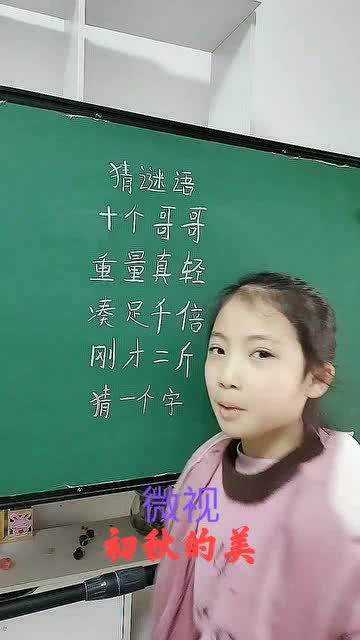 猜谜语
十个哥哥
重量真轻
凑足千倍
刚才二斤
猜一个字
微视
初秋的美